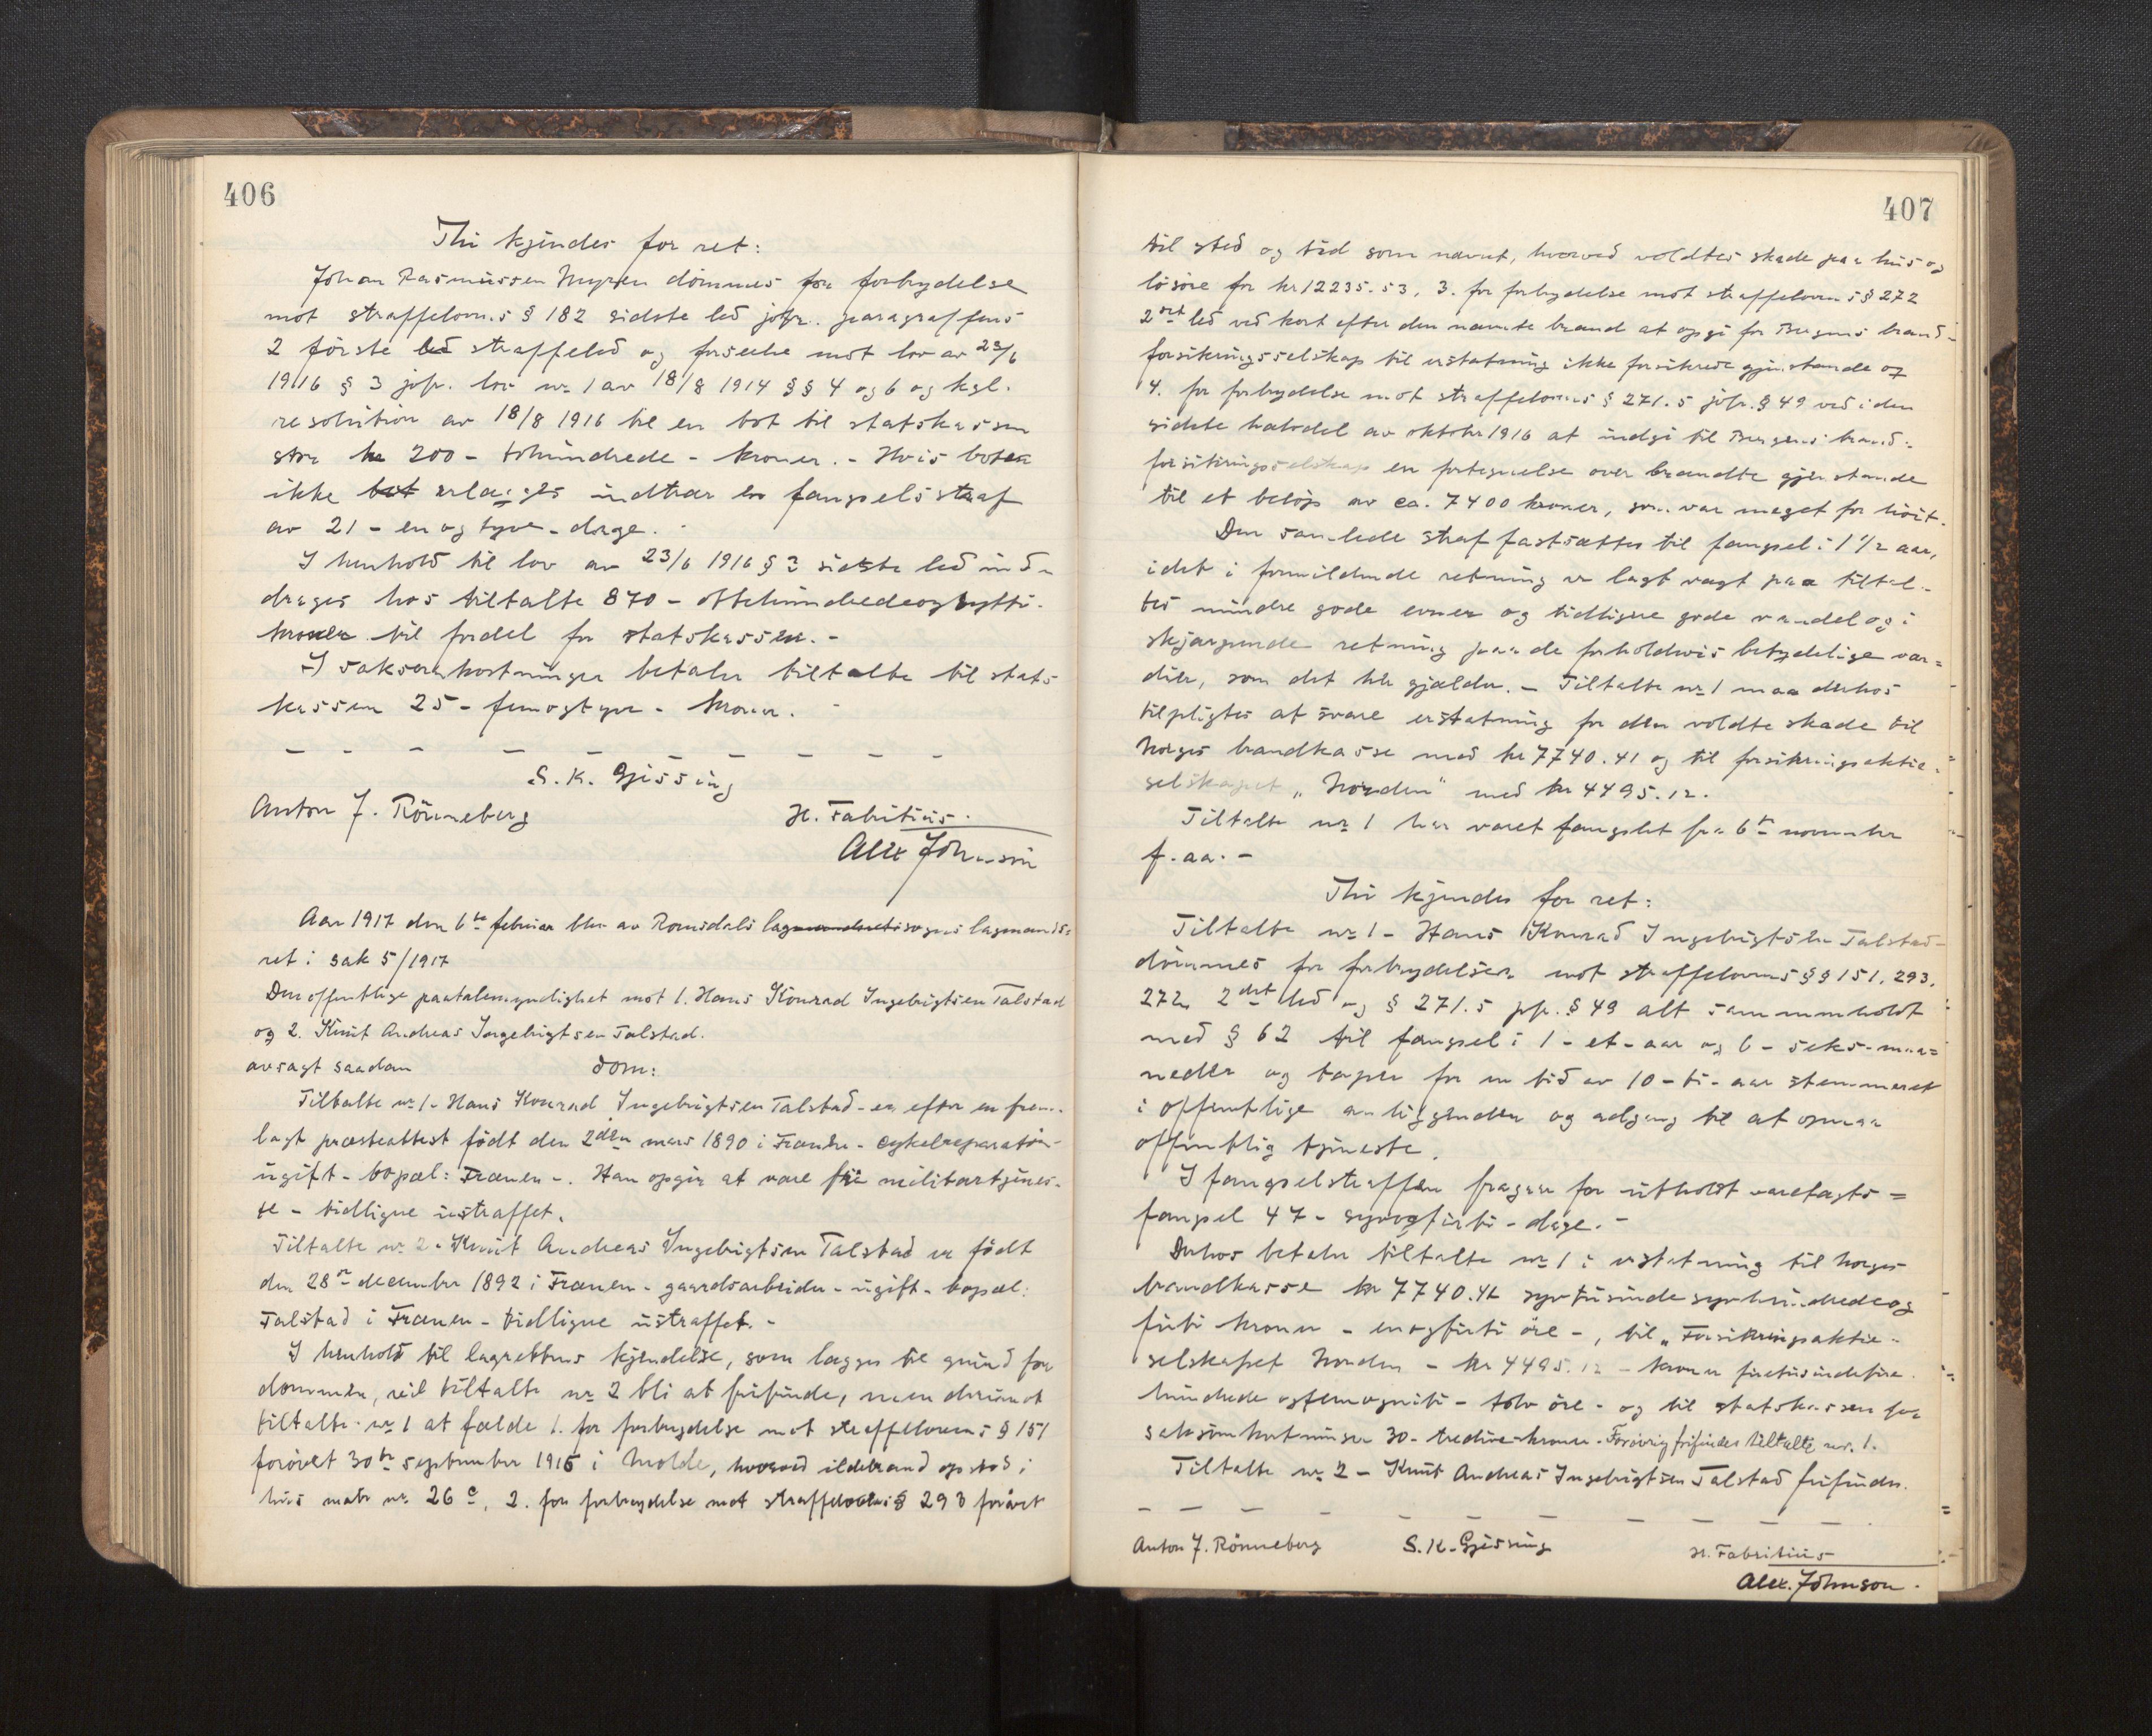 406
Thi kjendes for ret:
Johan Rasmussen Myren dömmes for forbrydelse
mot straffelovens § 182 sidste led jofr. paragraffens
2 förste straffeled og forseelse mot lov av 23/6
1916 § 3 jofr. lov nr. 1 av 18/8 1914 §§ 4 og 6 og kgl.
resolution av 18/8 1916 til en bot til statskassen
stor 200 - tohundrede - kroner. - Hvis boten
ikke erlægges indtrær en fængselsstraf
av 21 - en og tyve - dage. -
I henhold til lov av 23/6 1916 § 3 sidste led ind-
drages hos tiltalte 870 - ottehundredeogsytti-
kroner til fordel for statskassen. -
I saksomkostninger betaler tiltalte til stats-
kassen 25 - femogtyve - kroner. -
S. K. Gjessing
Anton J. Rönneberg H. Fabritius.
Alex Johnson
Aar 1917 den 6te februar blev av Romsdals lagsogns lagmands-
ret i sak 5/1917
Den offentlige paatalemyndighet mot 1. Hans Konrad Ingebrigtsen Talstad
og 2. Knut Andreas Ingebrigtsen Talstad.
avsagt saadan dom:
Tiltalte nr. 1 - Hans Konrad Ingebrigtsen Talstad - er efter en frem-
lagt præsteattest född den 2den mars 1890 i Frænen - cykelreparatör -
ugift - bopæl: Frænen -. Han opgir at være fri militærtjenes-
te - tidligere ustraffet.
Tiltalte nr. 2 - Knut Andreas Ingebrigtsen Talstad er född
den 28de december 1892 i Frænen - gaardsarbeider - ugift - bopæl:
Talstad i Frænen - tidligere ustraffet. -
I henhold til lagrettens kjendelse, som lægges til grund for
dommen, vil tiltalte nr. 2 bli at frifinde, men derimot
tiltalte nr. 1 at fælde 1. for forbrydelse mot straffelovens § 151
forövet 30te september 1916 i Molde, hvorved ildebrand opstod i
hus matr. nr. 26 c, 2. for forbrydelse mot straffelovens § 293 forövet
407
til sted og tid som nævnt, hvorved voldtes skade paa hus og
lösöre for kr 12235.53, 3. for forbrydelse mot straffelovens § 272
2det led ved kort efter den nævnte brand at opgi for Bergens brand-
forsikringsselskap til erstatning ikke forsikrede gjenstande og
4. for forbrydelse mot straffelovens § 271.5 jofr. § 49 ved i den
sidste halvdel av oktober 1916 at indgi til Bergens brand-
forsikringsselskap en fortegnelse over brændte gjenstande
til et belöp av ca. 7400 kroner, som var meget for höit.
Den samlede straf fastsættes til fængsel i 1 1/2 aar,
idet i formildende retning er lagt vægt paa tiltal-
tes mindre gode evner og tidligere gode vandel og i
skjærpende retning paa de forholdsvis betydelige vær-
dier, som det her gjælder. - Tiltalte nr. 1 maa derhos
tilpligtes at svare erstatning for den voldte skade til
Norges brandkasse med kr 7740.41 og til forsikringsaktie-
selskapet „Norden" med kr 4495.12.
Tiltalte nr. 1 har været fængslet fra 6te november
f. aa. -
Thi kjendes for ret:
Tiltalte nr. 1 - Hans Konrad Ingebrigtsen Talstad -
dömmes for forbrydelser mot straffelovens §§ 151, 293,
272, 2det led og § 271.5 jfr. § 49 alt sammenholdt
med § 62 til fængsel i 1 - et - aar og 6 - seks - maa-
neder og taper for en tid av 10 - ti - aar stemmeret
i offentlige anliggender og adgang til at opnaa
offentlig tjeneste.
I fængselstraffen fragaar for utholdt varetægts-
fængsel 47 - syvogfirti - dage. -
Derhos betaler tiltalte nr. 1 i erstatning til Norges
brandkasse kr 7740.41 syvtusindesyvhundredeog
firti kroner - enogfirti öre -, til „Forsikringsaktie-
selskapet Norden - kr 4495.12 - kroner firetusindefire
hundrede ogfemogniti - tolv öre - og til statskassen for
saksomkostninger 30 - tredive - kroner. Forövrig frifindes tiltalte nr. 1.
Tiltalte nr. 2 - Knut Andreas Ingebrigtsen Talstad frifindes.
Anton J. Rönneberg S. K. Gjessing H. Fabritius
Alex. Johnson.